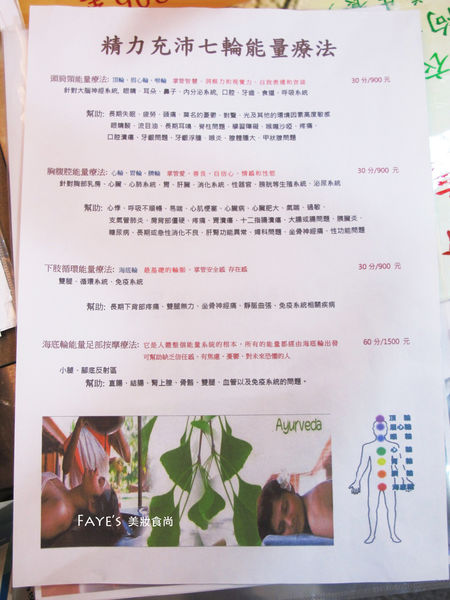 精力充沛七輪能量療法
頭肩頸能量療法: 頂輪、眉心輪、喉輪 掌管智慧、洞察力和視覺力、自我表達和言談 30 分/900 元
針對大腦神經系統, 眼睛、耳朵、鼻子、內分泌系統, 口腔、牙齒、食道、呼吸系統
幫助: 長期失眠、疲勞、頭痛、莫名的憂鬱、對聲、光及其他的環境因素高度敏感
眼睛酸、流目油、長期耳鳴、脊柱問題、學習障礙、喉嚨沙啞、疼痛、
口腔潰瘍、牙齦問題、牙齦浮腫、喉炎、腺體腫大、甲狀腺問題
胸腹腔能量療法: 心輪、胃輪、臍輪 掌管愛、善良、自信心、情感和性慾 30 分/900 元
針對胸部乳房、心臟、心肺系統、胃、肝臟、消化系統、性器官、膀胱等生殖系統、泌尿系統
幫助: 心悸、呼吸不順暢、易喘、心肌梗塞、心臟病、心臟肥大、氣喘、過敏、
支氣管肺炎、肩背部僵硬、疼痛、胃潰瘍、十二指腸潰瘍、大腸或腸問題、胰臟炎、
糖尿病、長期或急性消化不良、肝腎功能異常、婦科問題、坐骨神經痛、性功能問題
下肢循環能量療法: 海底輪 最基礎的輪脈，掌管安全感 存在感 30 分/900 元
雙腿、循環系統、免疫系統
幫助: 長期下背部疼痛、雙腿無力、坐骨神經痛、靜脈曲張、免疫系統相關疾病
海底輪能量足部按摩療法: 它是人體整個能量系統的根本，所有的能量都經由海底輪出發 60 分/1500 元
可幫助缺乏信任感、有焦慮、憂鬱、對未來恐懼的人
小腿、腳底反射區
幫助: 直腸、結腸、腎上腺、骨骼、雙腿、血管以及免疫系統的問題。
Ayurveda
FAYE'S 美妝食尚
頂 輪
眉心輪
喉 輪
心 輪
海底輪